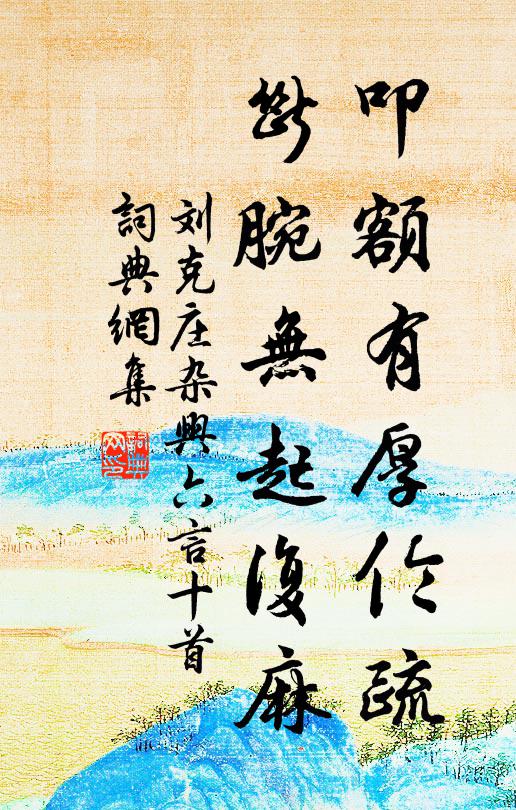 叩額有厚伦疏
斷腕無起復麻
刘克庄杂興六言十首
詞典網集